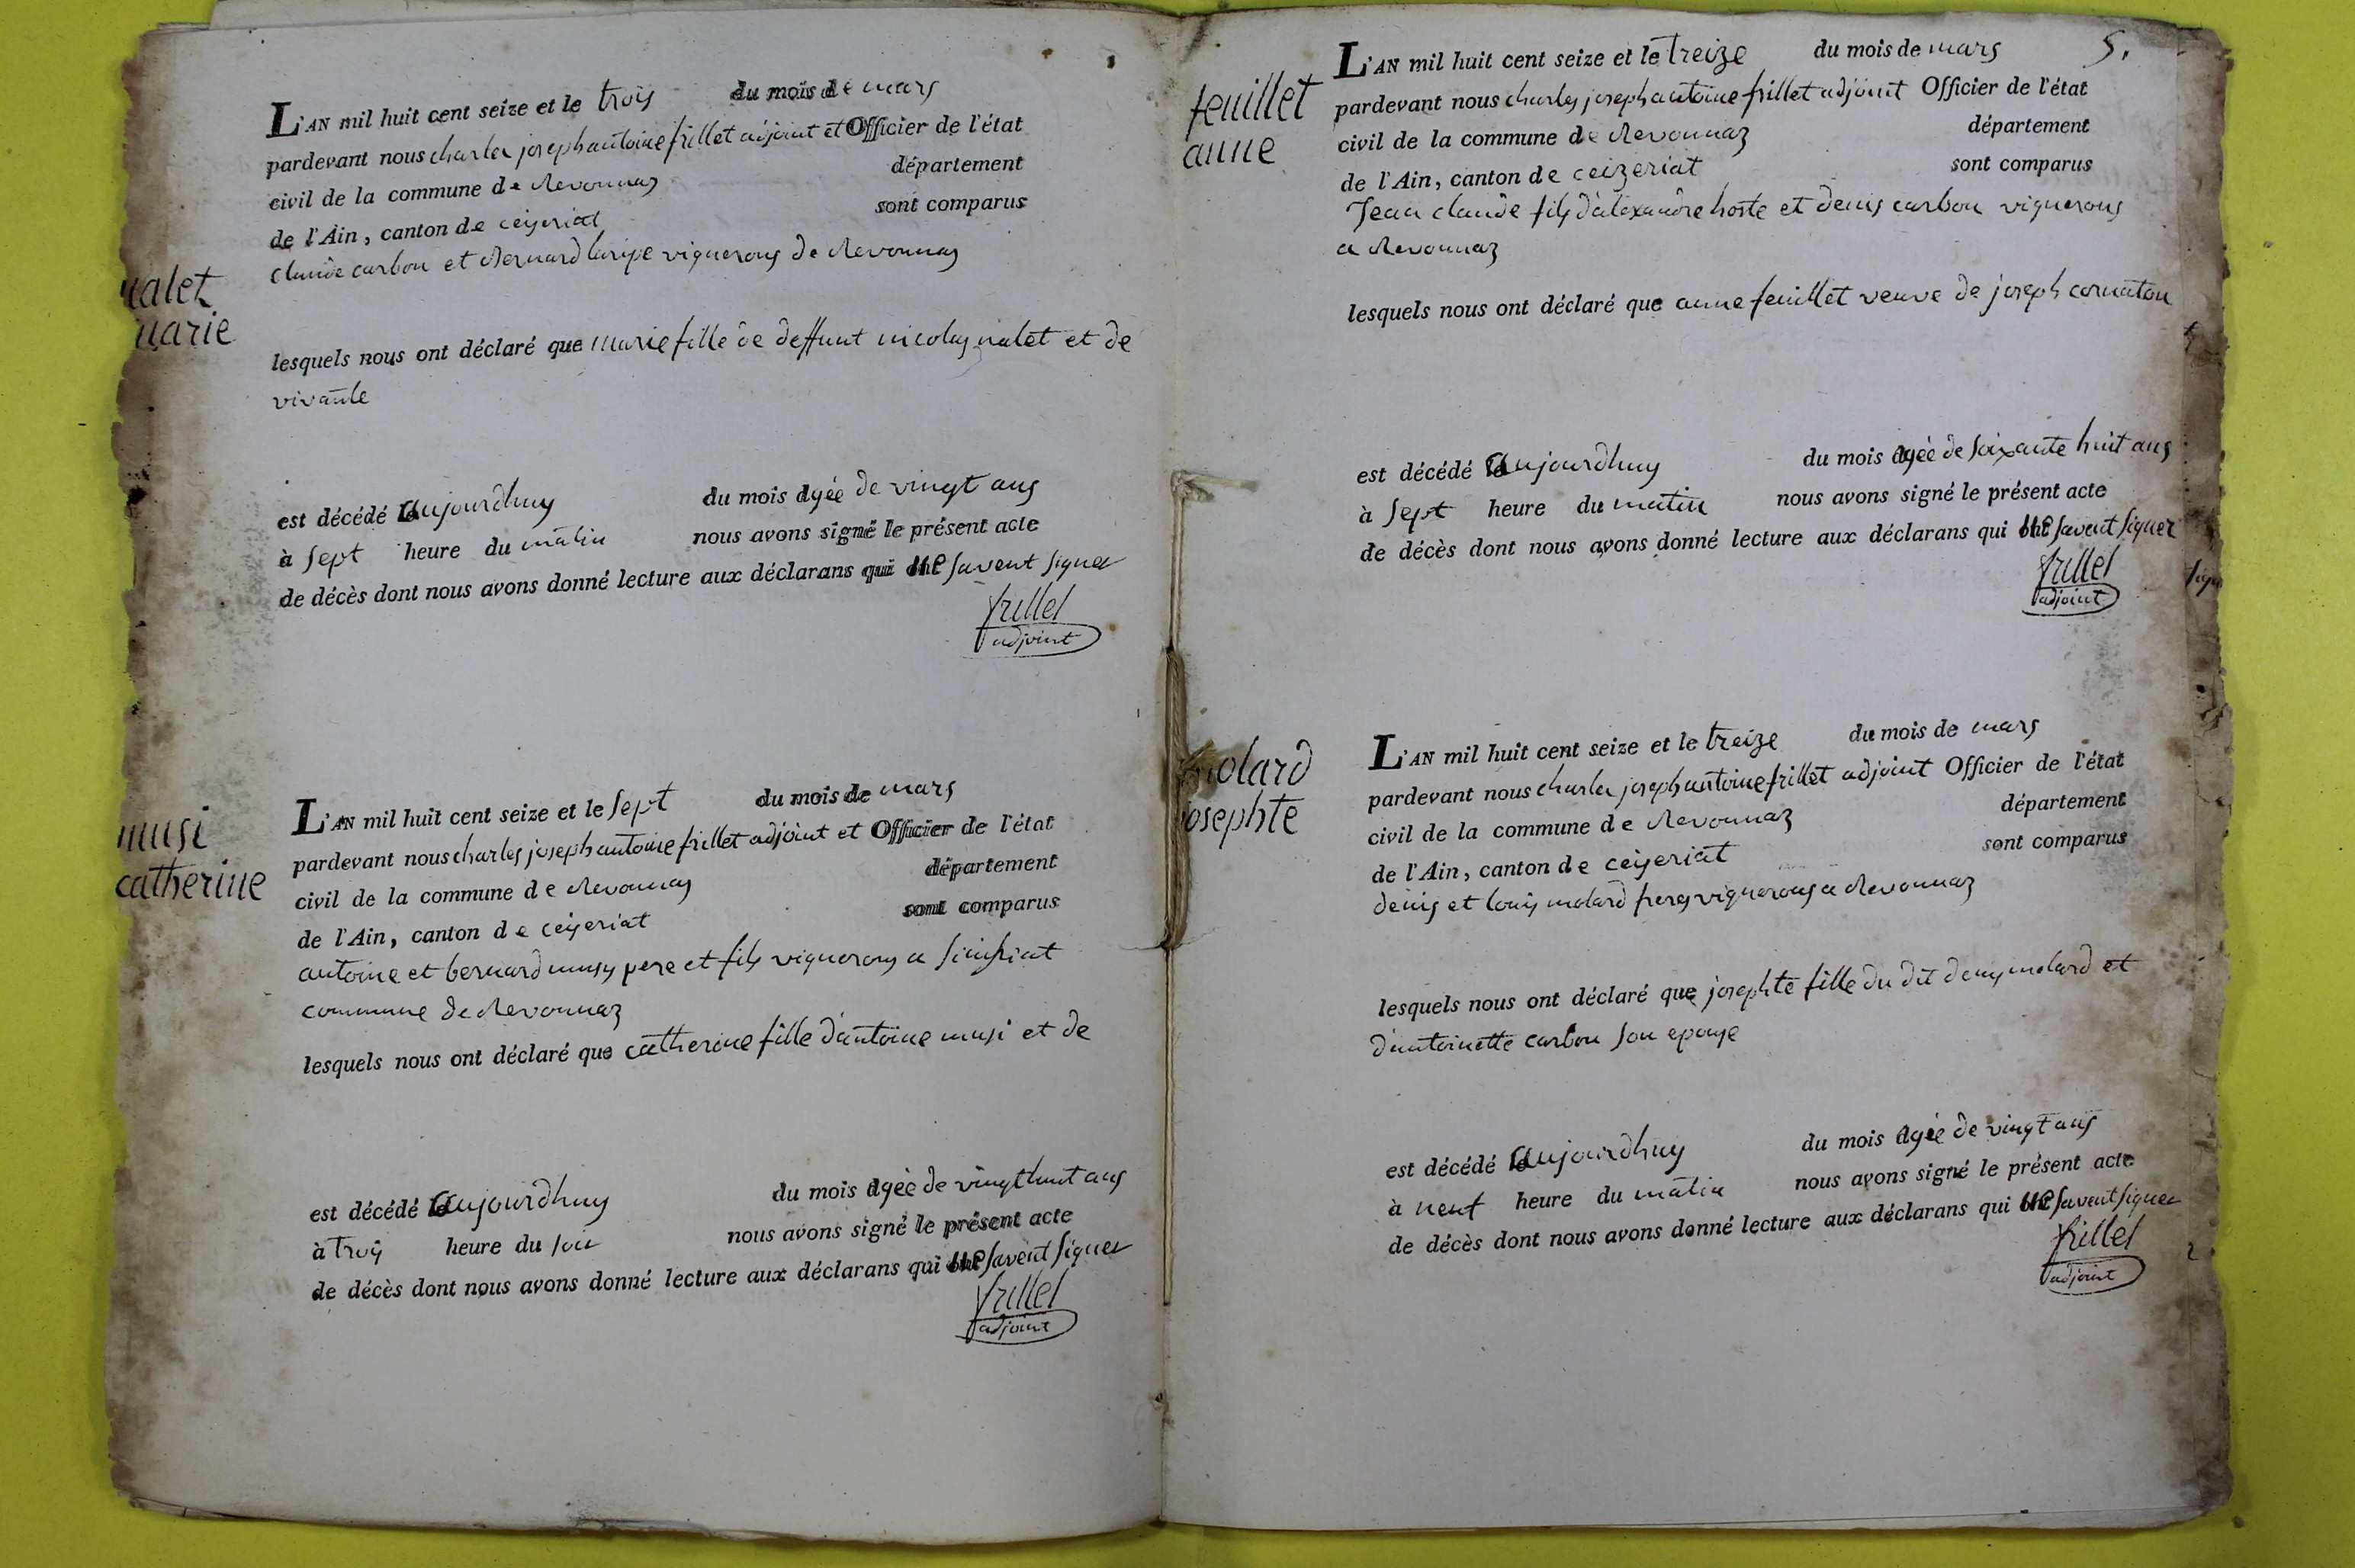 L'AN mil huit cent seize et le trois du mois de mars
pardevant nous charles joseph antoine frillet adjoint et Officier de l'état
civil de la commune de Revonnaz département
de l'Ain, canton de ceyseriat sont comparus
claude carbon et Bernard vignerons de Revonnaz
nalet
marie
lesquels nous ont déclaré que marie fille de deffunt nicolas nalet et de
vivante
est décédé aujourdhuy du mois agée de vingt ans
à sept heure du matin nous avons signé le présent acte
de décès dont nous avons donné lecture aux déclarans qui ne savent signer
frillet
adjoint
L'AN mil huit cent seize et le sept du mois de mars
musi
catherine
pardevant nous charles joseph antoine frillet adjoint et Officier de l'état
civil de la commune de Revonnaz département
de l'Ain, canton de ceyseriat sont comparus
antoine et bernard musy pere et fils vignerons a
commune de Revonnaz
lesquels nous ont déclaré que catherine fille d'antoine musi et de
est décédé aujourdhuy du mois agée de vingt huit ans
à trois heure du soir nous avons signé le présent acte
de décès dont nous avons donné lecture aux déclarans qui ne savent signer
frillet
adjoint
5.
feuillet
anne
L'AN mil huit cent seize et le treize du mois de mars
pardevant nous charles joseph antoine frillet adjoint Officier de l'état
civil de la commune de Revonnaz département
de l'Ain, canton de ceizeriat sont comparus
Jean claude fils d'alexandre hoste et denis carbon vignerons
a Revonnaz
lesquels nous ont déclaré que anne feuillet veuve de joseph cornaton
est décédé aujourdhuy du mois agée de soixante huit ans
à sept heure du matin nous avons signé le présent acte
de décès dont nous avons donné lecture aux déclarans qui ne savent signer
frillet
adjoint
molard
josephte
L'AN mil huit cent seize et le treize du mois de mars
pardevant nous charles joseph antoine frillet adjoint Officier de l'état
civil de la commune de Revonnaz département
de l'Ain, canton de ceyseriat sont comparus
denis et louis molard freres vignerons a Revonnaz
lesquels nous ont déclaré que josephte fille du dit denys molard et
d'antoinette carbon son epouse
est décédé aujourdhuy du mois agée de vingt ans
à neuf heure du matin nous avons signé le présent acte
de décès dont nous avons donné lecture aux déclarans qui ne savent signer
frillet
adjoint